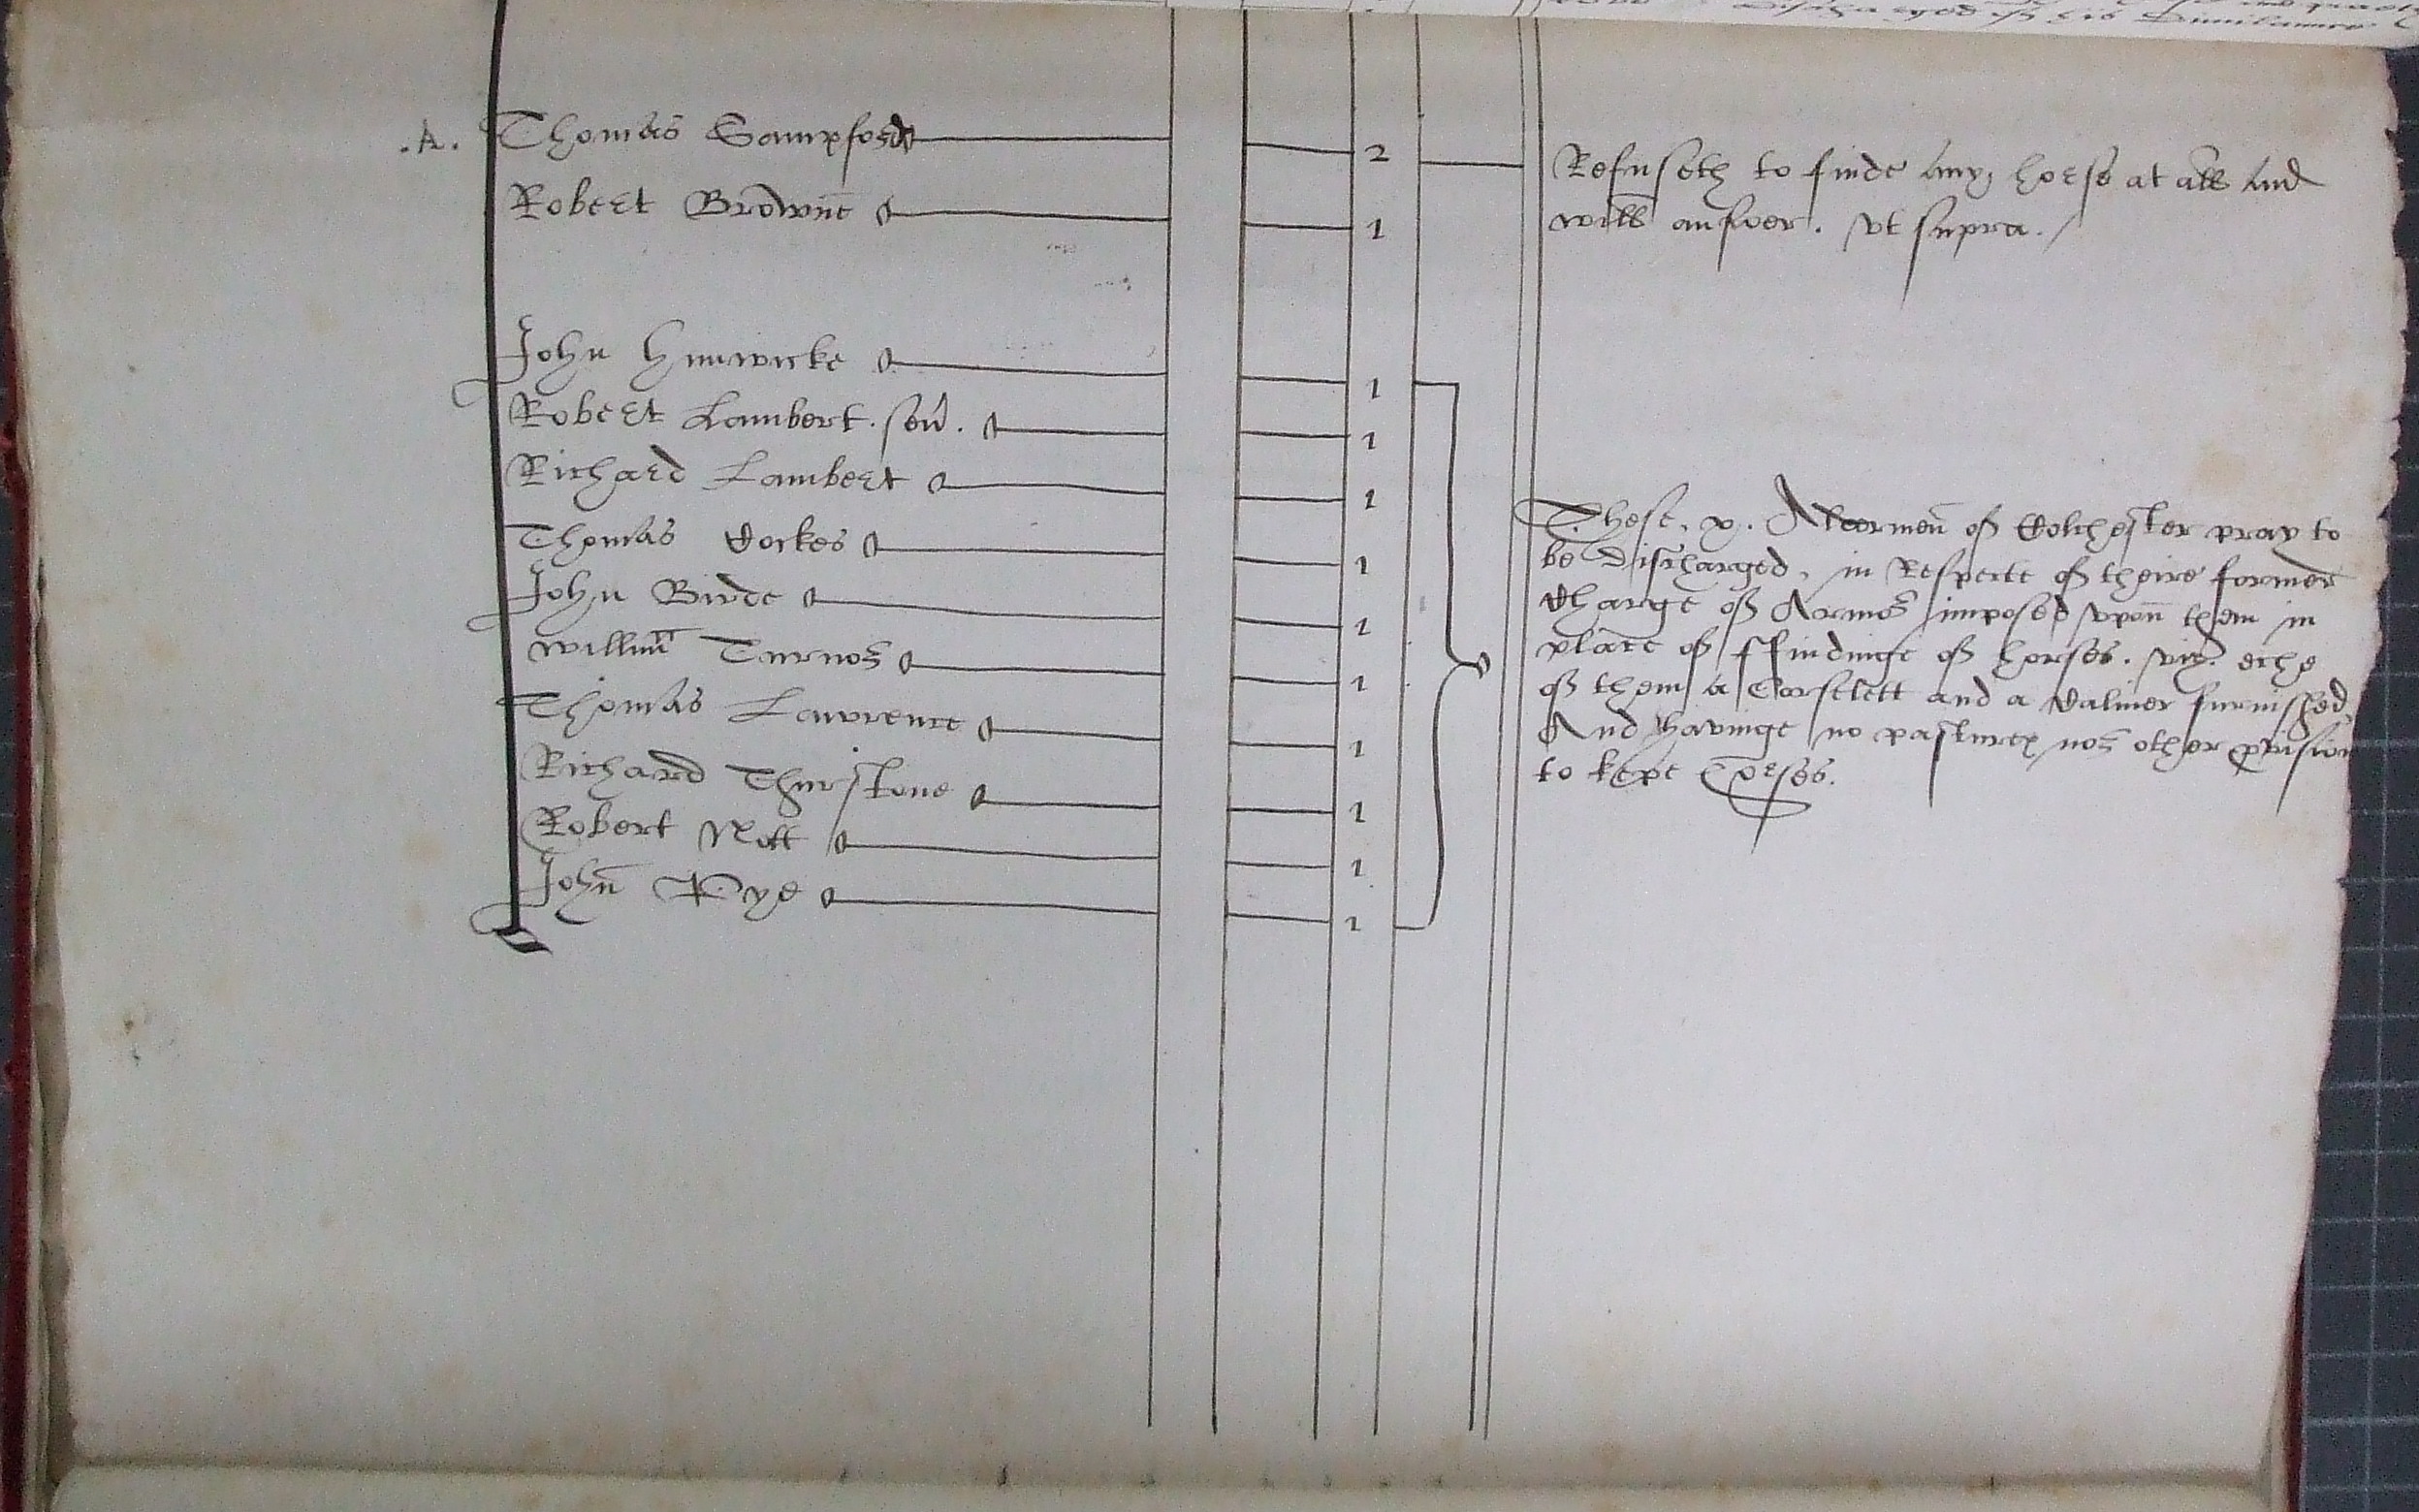 .A. Thomas Sampford 2 Refuseth to finde any horse at all And
Robert Browne 1 will answer. vt supra./
John Hunwicke 1
Robert Lambert. sen̄. 1
Richard Lambert 1
Thomas Cockes 1
John Birde 1
Willm̄ Turnor 1
Thomas Lawrence 1
Richard Thurstone 1
Robert Mott 1
John̄ Pye 1
These. x. Aldermen̄ of Colchester pray to
be Discharged, in Respecte of theire former
Charge of Armor imposed vpon̄ them in
place of ffindinge of horses. viz. eche
of them a Corselett and a Caliver furnished,
And havinge no pastures nor other p̱vision
to kepe horses.